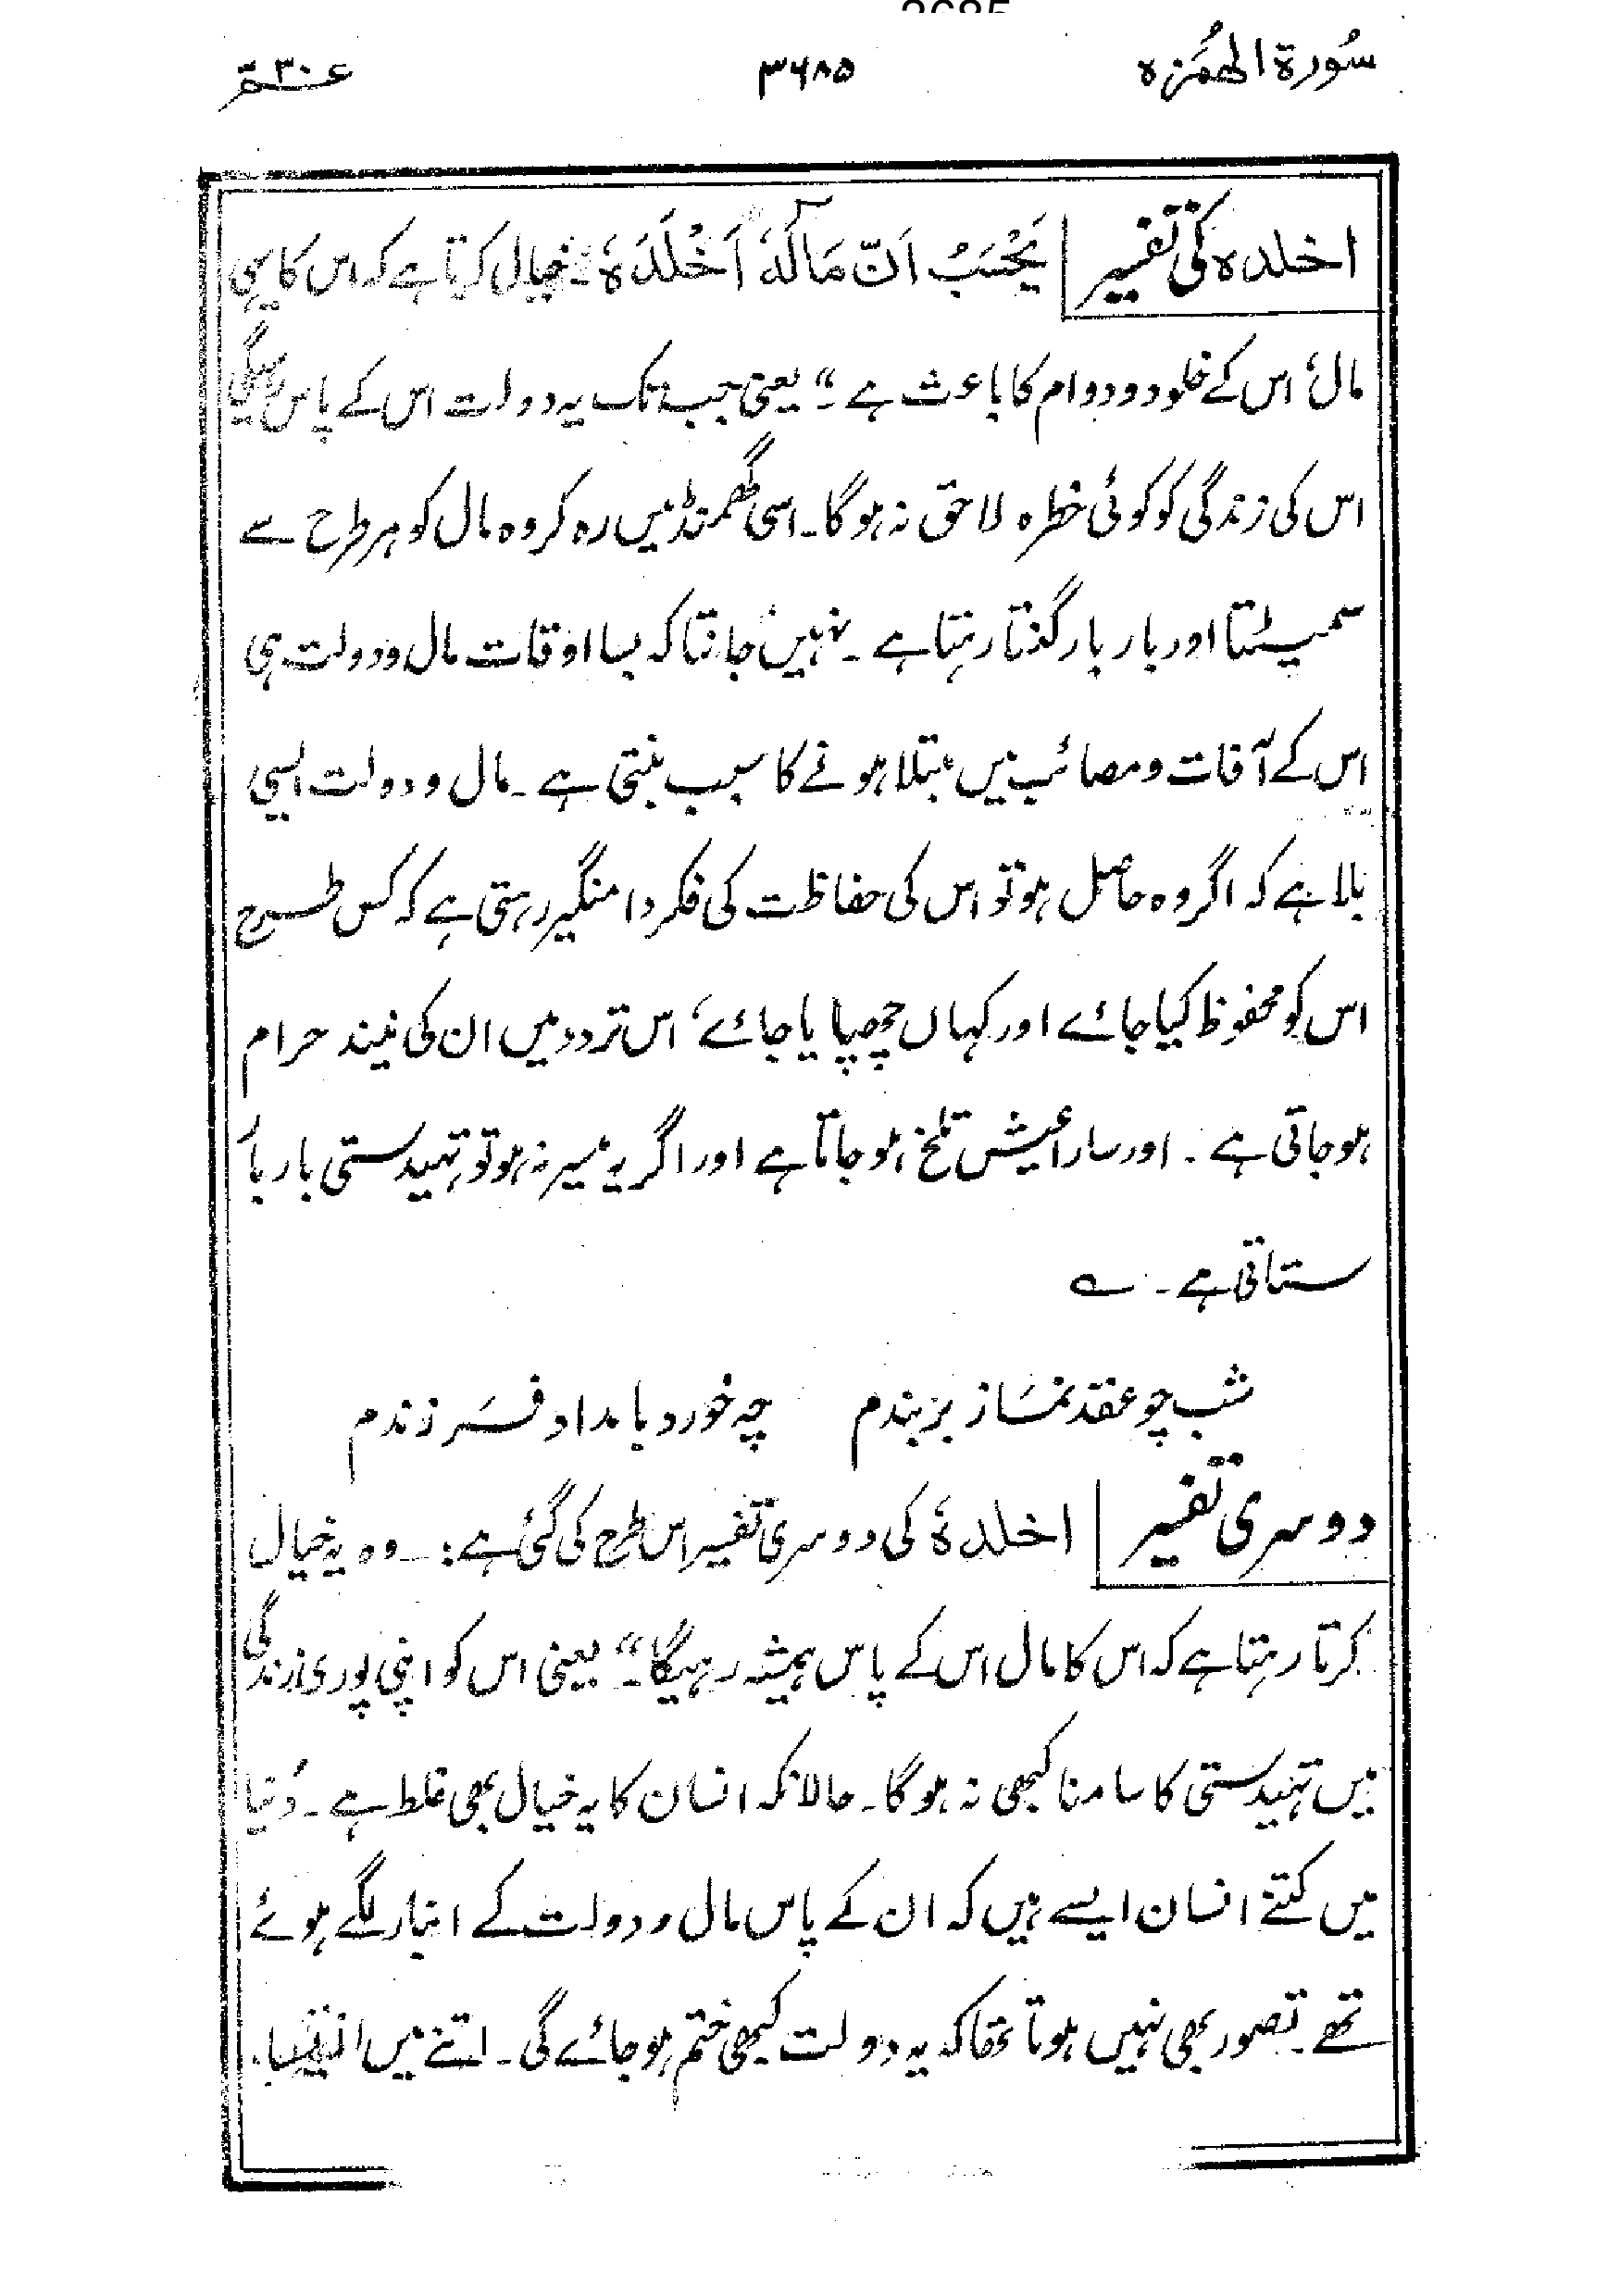 سُورۃ الھُمَزہ
۳۶۸۵
عــم ۳۰
اخلدہ کی تفسیر
یَحْسَبُ اَنَّ مَالَہٗ اَخْلَدَہٗ ۔ خیال کرتا ہے کہ اس کا یہی
مال، اس کے خلود و دوام کا باعث ہے ۔" یعنی جب تک یہ دولت اس کے پاس رہیگی
اس کی زندگی کو کوئی خطرہ لاحق نہ ہو گا۔ اسی گھمنڈ میں رہ کر وہ مال کو ہر طرح سے
سمیٹتا اور بار بار گنتا رہتا ہے ۔ نہیں جانتا کہ بسا اوقات مال و دولت ہی
اس کے آفات و مصائب میں مبتلا ہونے کا سبب بنتی ہے ۔ مال و دولت ایسی
بلا ہے کہ اگر وہ حاصل ہو تو اس کی حفاظت کی فکر دامنگیر رہتی ہے کہ کس طرح
اس کو محفوظ کیا جائے اور کہاں چھپایا جائے، اس تردد میں ان کی نیند حرام
ہو جاتی ہے ۔ اور سارا عیش تلخ ہو جاتا ہے اور اگر یہ میسر نہ ہو تو تہیدستی بار بار
ستاتی ہے ۔ ؎
شب چو عقد نماز بر بندم چہ خورد بامداد فرزندم
دوسری تفسیر
اخلدہٗ کی دوسری تفسیر اس طرح کی گئی ہے :۔ وہ یہ خیال
کرتا رہتا ہے کہ اس کا مال اس کے پاس ہمیشہ رہیگا ۔" یعنی اس کو اپنی پوری زندگی
میں تہیدستی کا سامنا کبھی نہ ہو گا ۔ حالانکہ انسان کا یہ خیال بھی غلط ہے ۔ دُنیا
میں کتنے انسان ایسے ہیں کہ ان کے پاس مال و دولت کے انبار لگے ہوئے
تھے ۔ تصور بھی نہیں ہوتا تھا کہ یہ دولت کبھی ختم ہو جائے گی ۔ اتنے میں